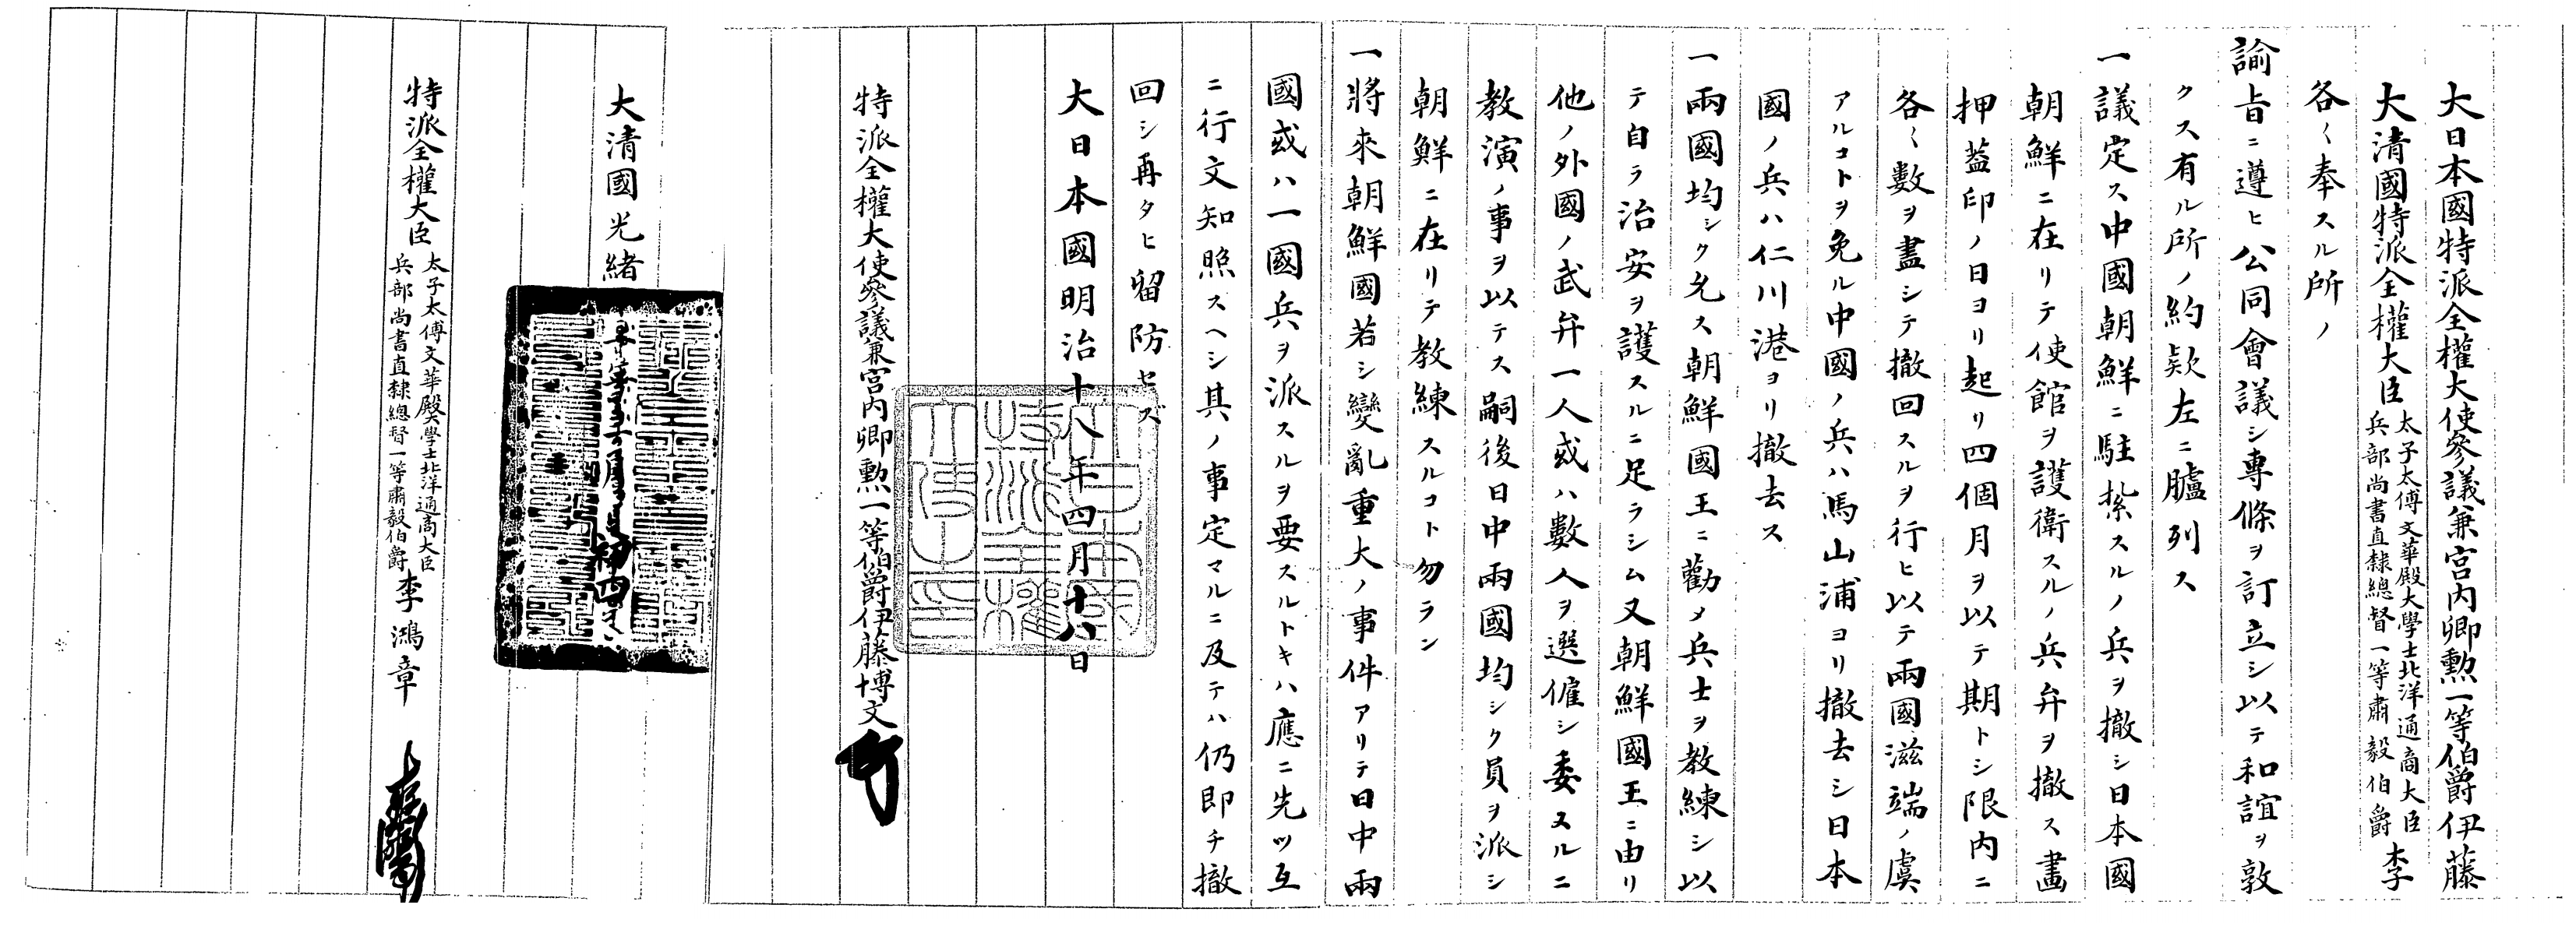 大日本國特派全權大使參議兼宮内卿勲一等伯爵伊藤
大清國特派全權大臣太子太傅文華殿大學士北洋通商大臣兵部尚書直隸總督一等肅毅伯爵李
各〱奉スル所ノ
諭旨ニ遵ヒ公同會議シ專條ヲ訂立シ以テ和誼ヲ敦
クス有ル所ノ約欵左ニ臚列ス
一議定ス中國朝鮮ニ駐紮スルノ兵ヲ撤シ日本國
朝鮮ニ在リテ使館ヲ護衛スルノ兵弁ヲ撤ス畫
押葢印ノ日ヨリ起リ四個月ヲ以テ期トシ限内ニ
各〱數ヲ盡シテ撤回スルヲ行ヒ以テ兩國滋端ノ虞
アルコトヲ免ル中國ノ兵ハ馬山浦ヨリ撤去シ日本
國ノ兵ハ仁川港ヨリ撤去ス
一兩國均シク允ス朝鮮國王ニ勸メ兵士ヲ教練シ以
テ自ラ治安ヲ護スルニ足ラシム又朝鮮國王ニ由リ
他ノ外國ノ武弁一人或ハ數人ヲ選僱シ委ヌルニ
教演ノ事ヲ以テス嗣後日中兩國均シク員ヲ派シ
朝鮮ニ在リテ教練スルコト勿ラン
一將來朝鮮國若シ變亂重大ノ事件アリテ日中兩
國或ハ一國兵ヲ派スルヲ要スルトキハ應ニ先ツ互
ニ行文知照スヘシ其ノ事定マルニ及テハ仍即チ撤
回シ再タヒ留防セズ
大日本國明治十八年四月十八日
特派全權大使參議兼宮内卿勲一等伯爵伊藤博文
大清國光緒
特派全權大臣太子太傅文華殿大學士北洋通商大臣兵部尚書直隸總督一等肅毅伯爵李鴻章